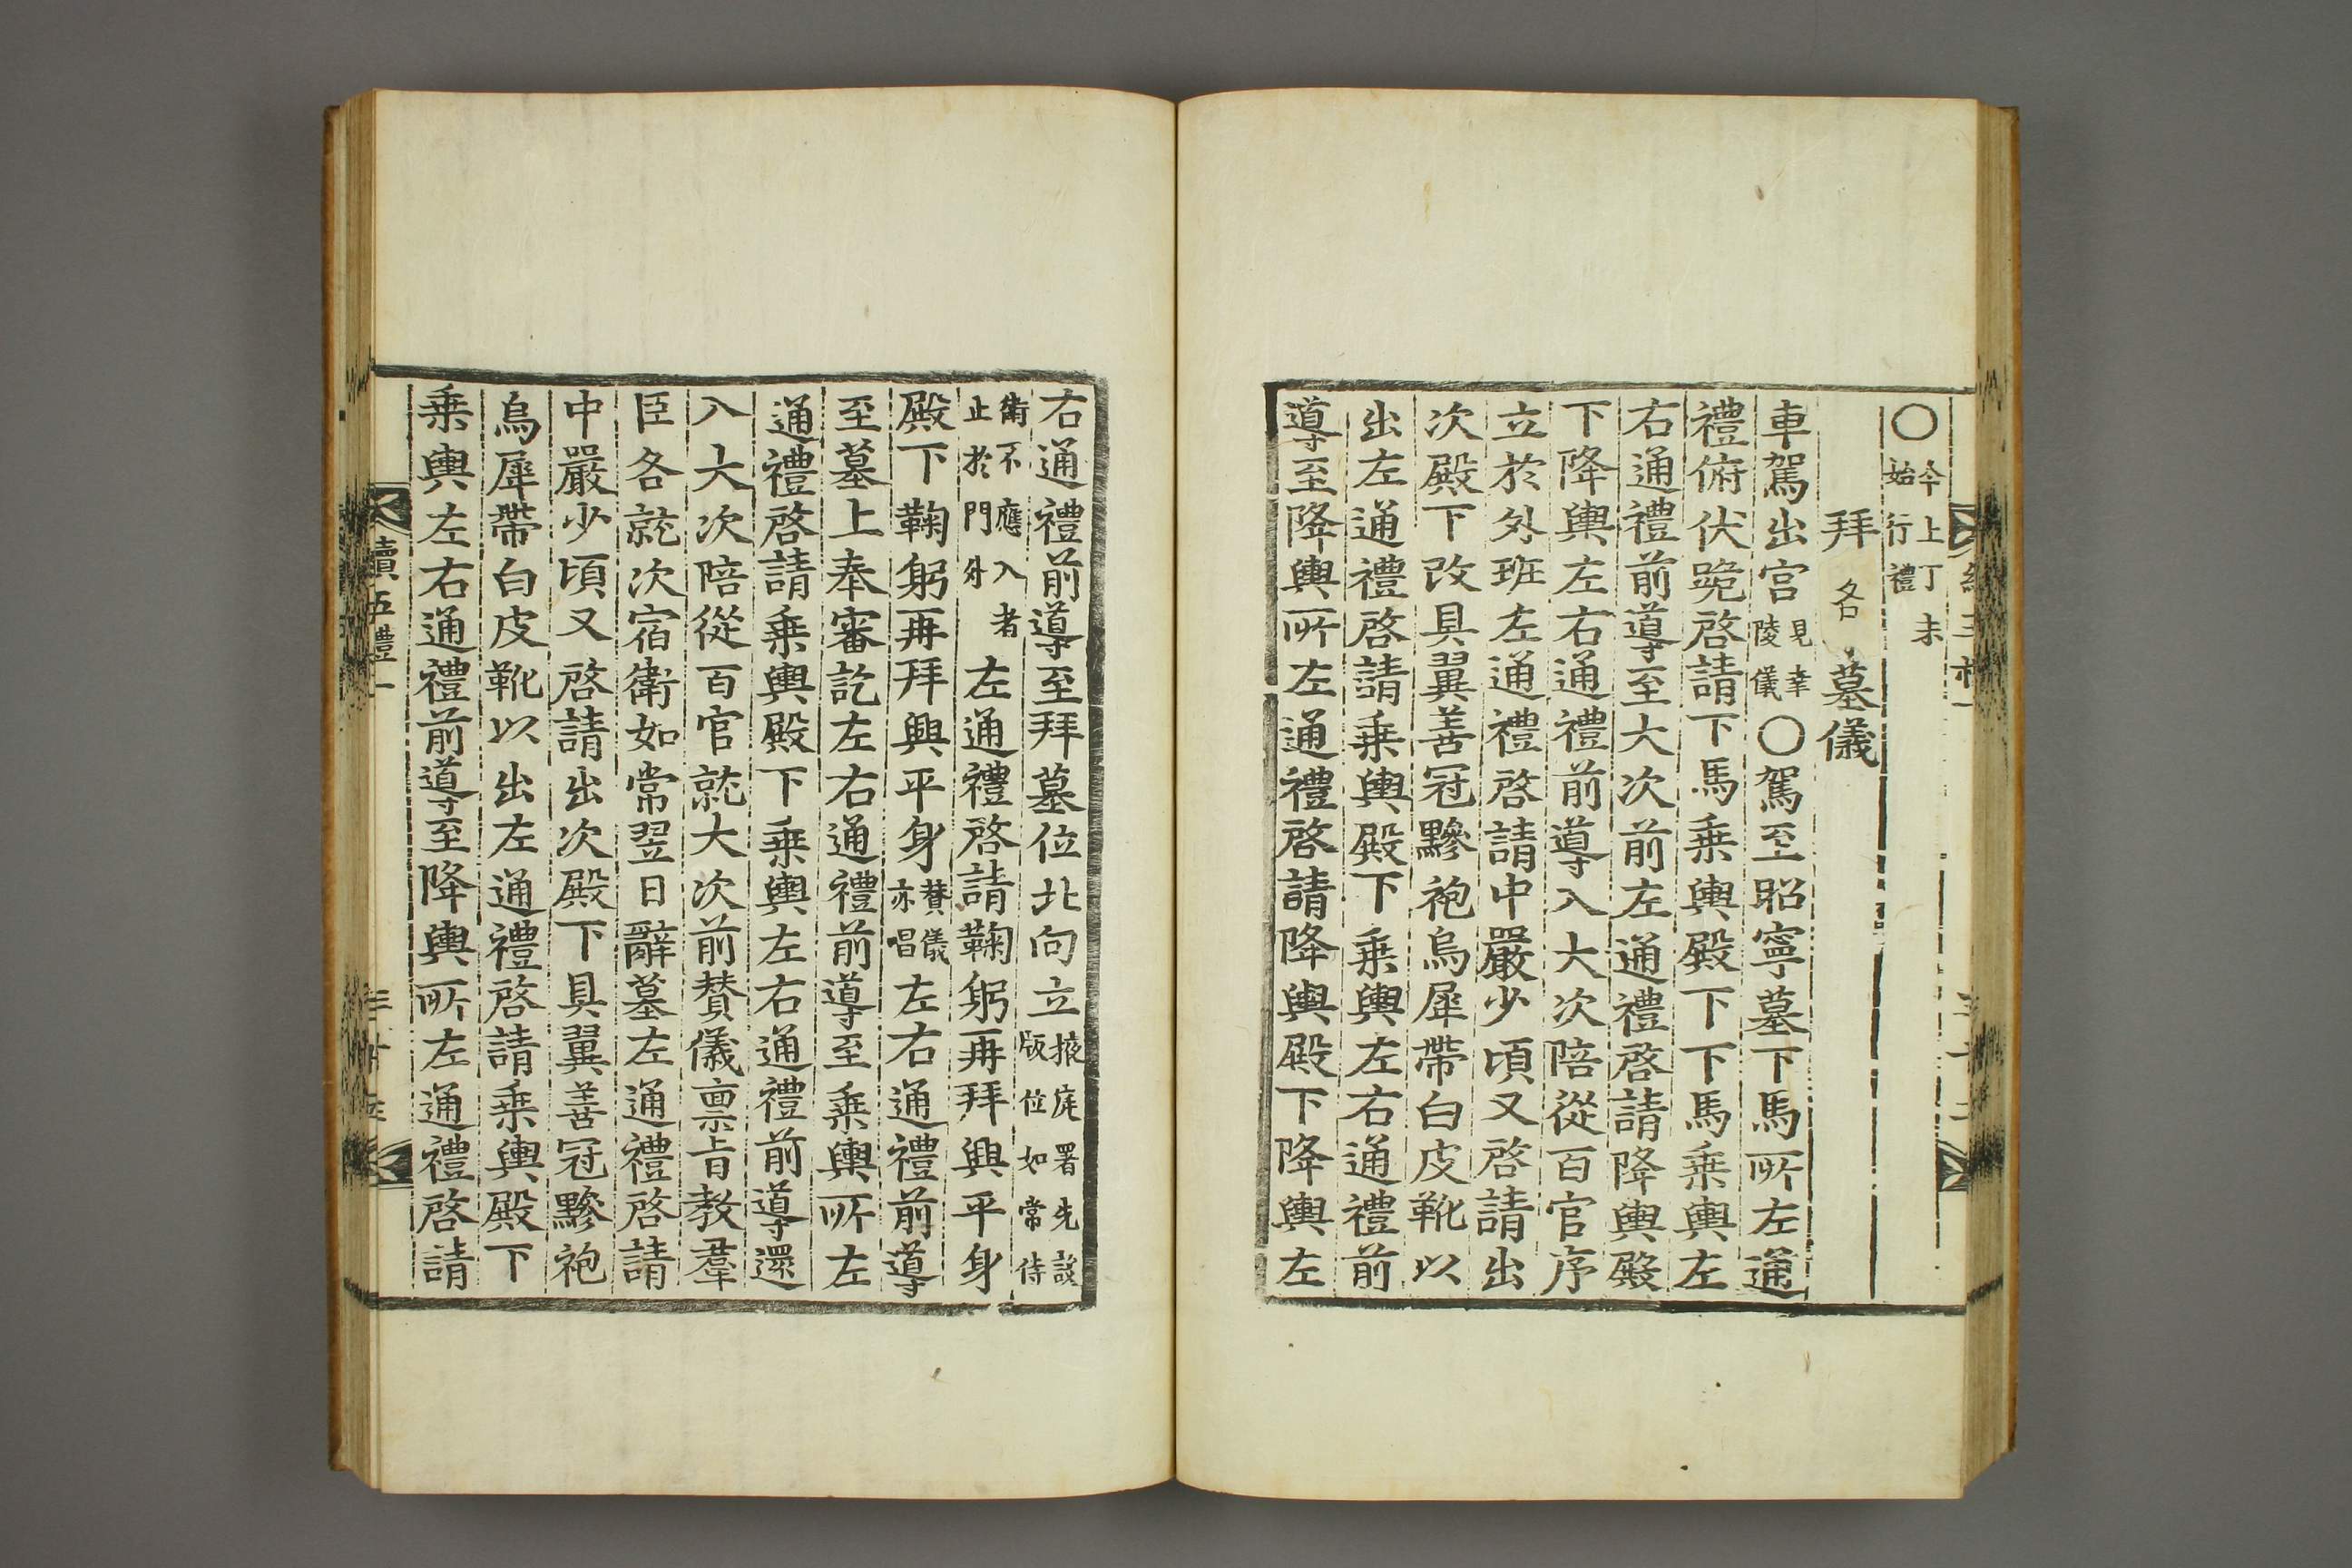 ○今上丁未始行禮
拜 各 墓儀
車駕出宮見幸陵儀○駕至昭寧墓下馬所左通
禮俯伏跪啓請下馬乘輿殿下下馬乘輿左
右通禮前導至大次前左通禮啓請降輿殿
下降輿左右通禮前導入大次陪從百官序
立於外班左通禮啓請中嚴少頃又啓請出
次殿下改具翼善冠黲袍烏犀帶白皮靴以
出左通禮啓請乘輿殿下乘輿左右通禮前
導至降輿所左通禮啓請降輿殿下降輿左
右通禮前導至拜墓位北向立掖庭署先設版位如常侍
衛不應入者止於門外左通禮啓請鞠躬再拜興平身
殿下鞠躬再拜興平身贊儀亦唱左右通禮前導
至墓上奉審訖左右通禮前導至乘輿所左
通禮啓請乘輿殿下乘輿左右通禮前導還
入大次陪從百官就大次前贊儀稟旨敎羣
臣各就次宿衛如常翌日辭墓左通禮啓請
中嚴少頃又啓請出次殿下具翼善冠黲袍
烏犀帶白皮靴以出左通禮啓請乘輿殿下
乘輿左右通禮前導至降輿所左通禮啓請
續五禮一